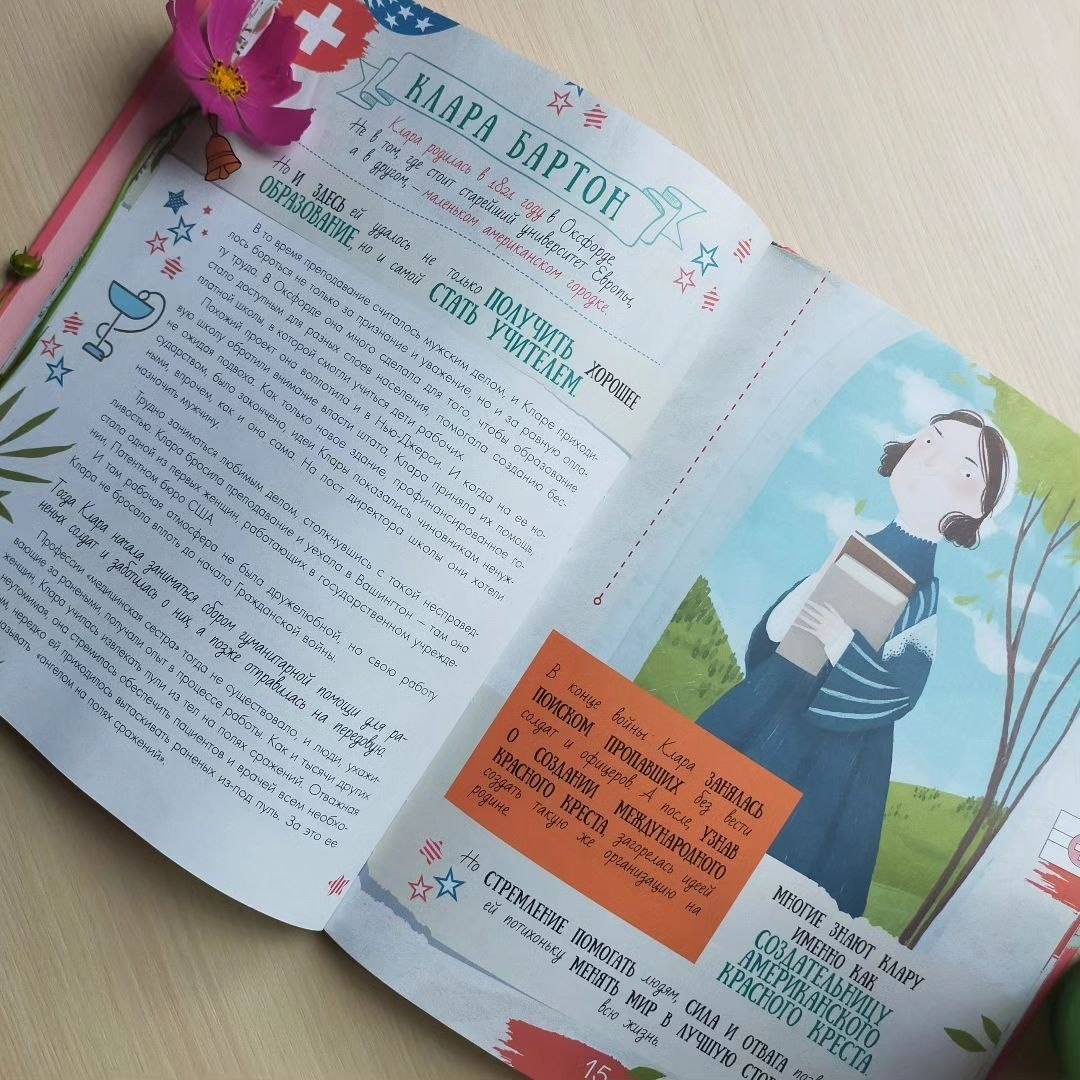 КЛАРА БАРТОН
Клара родилась в 1821 году в Оксфорде.
Не в том, где стоит старейший университет Европы,
а в другом, – маленьком американском городке.
Но И ЗДЕСЬ ей удалось не только ПОЛУЧИТЬ ХОРОШЕЕ
ОБРАЗОВАНИЕ, но и самой СТАТЬ УЧИТЕЛЕМ.
В то время преподавание считалось мужским делом, и Кларе приходи-
лось бороться не только за признание и уважение, но и за равную опла-
ту труда. В Оксфорде она много сделала для того, чтобы образование
стало доступным для разных слоев населения, помогала созданию бес-
платной школы, в которой смогли учиться дети рабочих.
Похожий проект она воплотила и в Нью-Джерси. И когда на ее но-
вую школу обратили внимание власти штата, Клара приняла их помощь,
не ожидая подвоха. Как только новое здание, профинансированное го-
сударством, было закончено, идеи Клары показались чиновникам ненуж-
ными, впрочем, как и она сама. На пост директора школы они хотели
назначить мужчину.
Трудно заниматься любимым делом, столкнувшись с такой несправед-
ливостью. Клара бросила преподавание и уехала в Вашингтон – там она
стала одной из первых женщин, работающих в государственном учрежде-
нии, Патентном бюро США.
И там рабочая атмосфера не была дружелюбной, но свою работу
Клара не бросала вплоть до начала Гражданской войны.
Тогда Клара начала заниматься сбором гуманитарной помощи для ра-
неных солдат и заботилась о них, а позже отправилась на передовую.
Профессии «медицинская сестра» тогда не существовало, и люди, ухажи-
вающие за ранеными, получали опыт в процессе работы. Как и тысячи других
женщин, Клара училась извлекать пули из тел на полях сражений. Отважная
неутомимая, она стремилась обеспечить пациентов и врачей всем необхо-
м, нередко ей приходилось вытаскивать раненых из-под пуль. За это ее
называть «ангелом на полях сражений».
В конце войны Клара ЗАНЯЛАСЬ
ПОИСКОМ ПРОПАВШИХ без вести
солдат и офицеров. А после, УЗНАВ
О СОЗДАНИИ МЕЖДУНАРОДНОГО
КРАСНОГО КРЕСТА, загорелась идеей
создать такую же организацию на
родине.
МНОГИЕ ЗНАЮТ КЛАРУ
ИМЕННО КАК
СОЗДАТЕЛЬНИЦУ
АМЕРИКАНСКОГО
КРАСНОГО КРЕСТА
Но СТРЕМЛЕНИЕ ПОМОГАТЬ людям, СИЛА И ОТВАГА позв
ей потихоньку МЕНЯТЬ МИР В ЛУЧШУЮ СТО
всю жизнь.
15